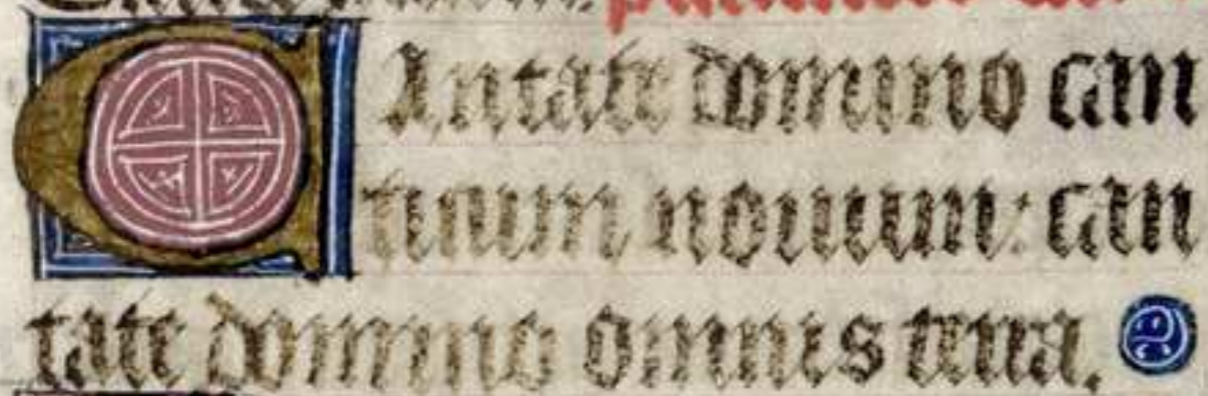 CAntate domino can
ticum nouum: can
tate domino omnis terra.